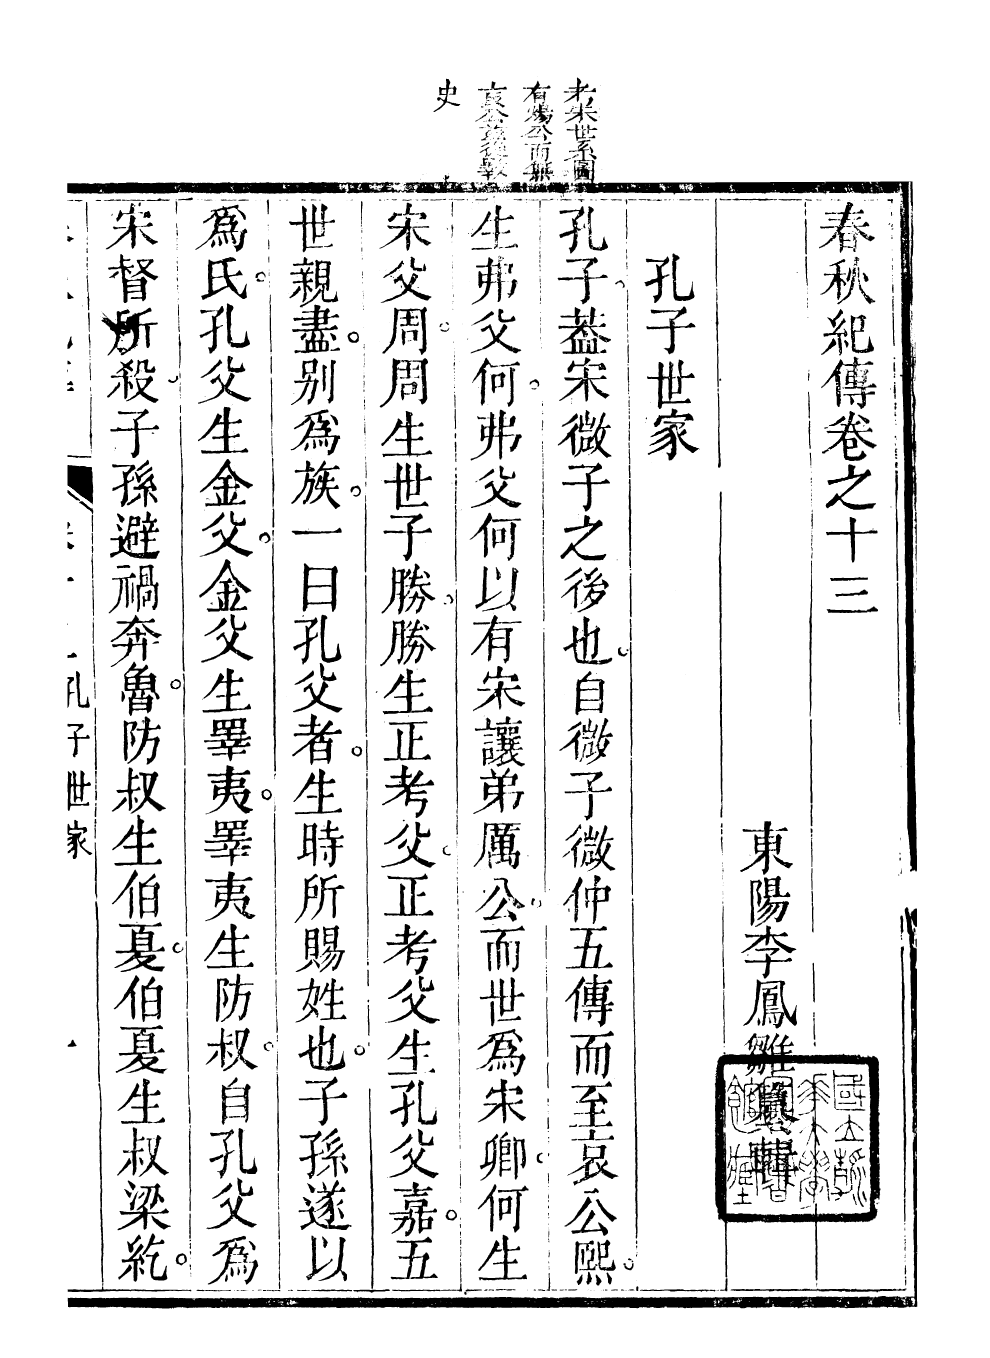 考宋世系圖
有煬公而無
哀公
史
春秋紀傳卷之十三
東陽李鳳雛纂輯
孔子世家
孔子蓋宋微子之後也自微子微仲五傳而至哀公熙
生弗父何弗父何以有宋讓弟厲公而世爲宋卿何生
宋父周周生世子勝勝生正考父正考父生孔父嘉五
世親盡别爲族一曰孔父者生時所賜姓也子孫遂以
爲氏孔父生金父金父生睪夷睪夷生防叔自孔父爲
宋督所殺子孫避禍奔魯防叔生伯夏伯夏生叔梁紇
孔子世家